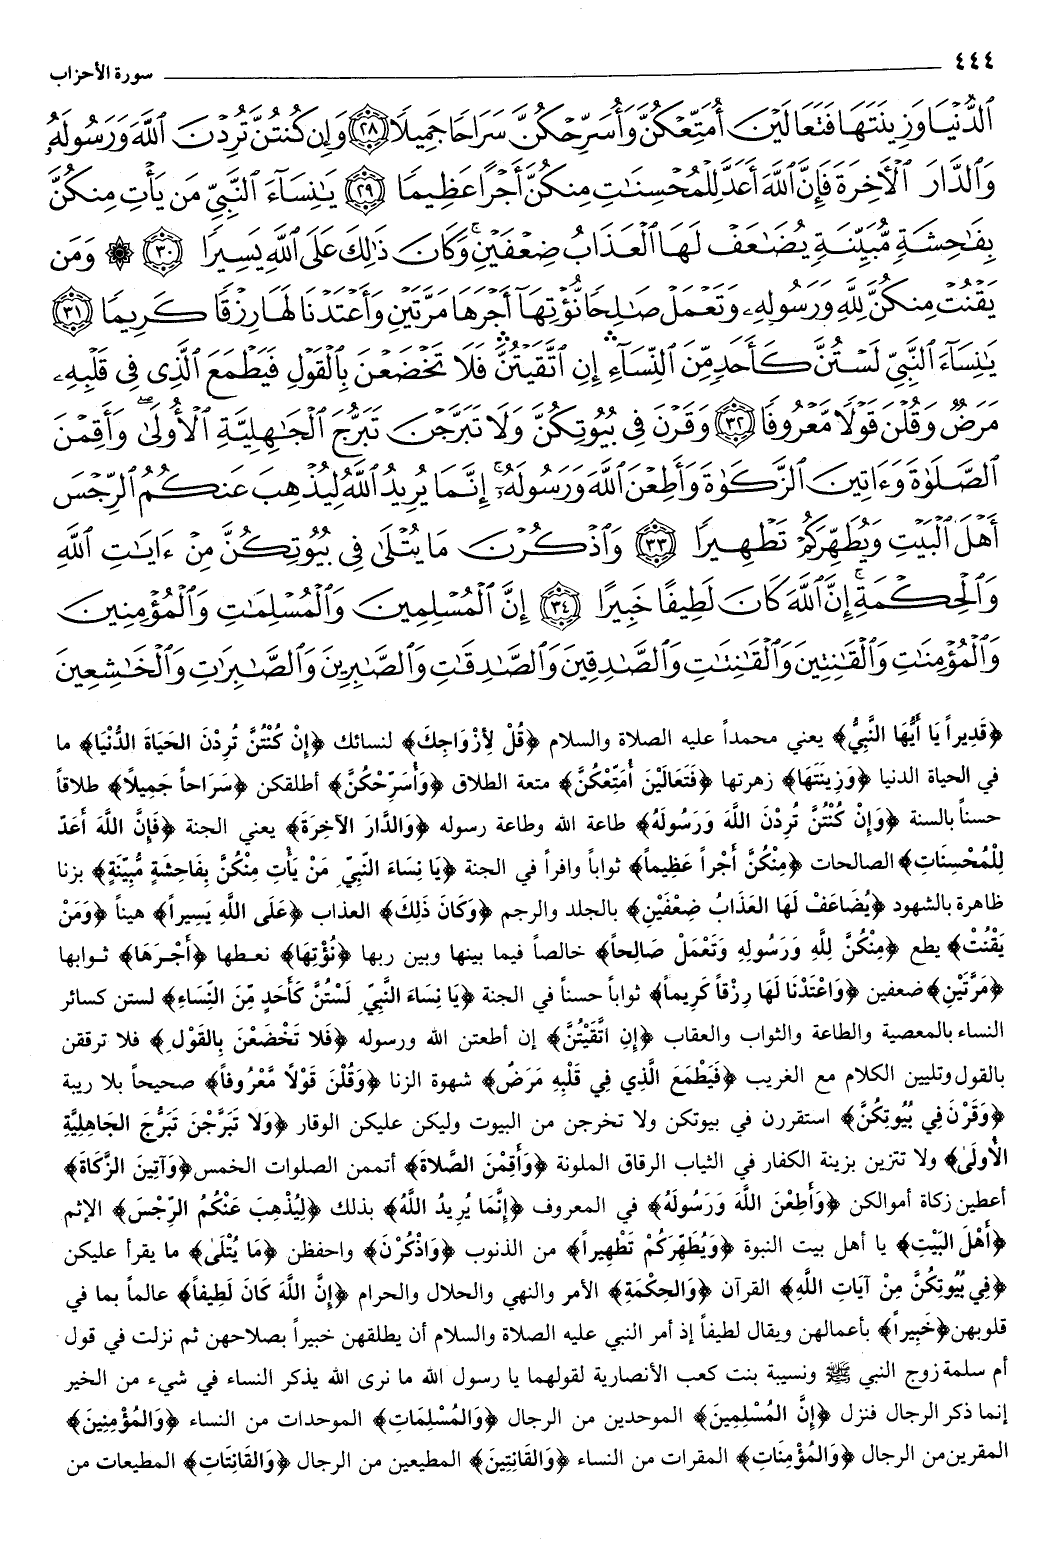 ٤٤٤ سورة الأحزاب
ٱلدُّنْيَا وَزِينَتَهَا فَتَعَالَيْنَ أُمَتِّعْكُنَّ وَأُسَرِّحْكُنَّ سَرَاحًا جَمِيلًا ٢٨ وَإِن كُنتُنَّ تُرِدْنَ ٱللَّهَ وَرَسُولَهُۥ
وَٱلدَّارَ ٱلْأَخِرَةَ فَإِنَّ ٱللَّهَ أَعَدَّ لِلْمُحْسِنَٰتِ مِنكُنَّ أَجْرًا عَظِيمًا ٢٩ يَٰنِسَآءَ ٱلنَّبِيِّ مَن يَأْتِ مِنكُنَّ
بِفَٰحِشَةٍ مُّبَيِّنَةٍ يُضَٰعَفْ لَهَا ٱلْعَذَابُ ضِعْفَيْنِ ۚ وَكَانَ ذَٰلِكَ عَلَى ٱللَّهِ يَسِيرًا ٣٠ ۞ وَمَن
يَقْنُتْ مِنكُنَّ لِلَّهِ وَرَسُولِهِۦ وَتَعْمَلْ صَٰلِحًا نُّؤْتِهَآ أَجْرَهَا مَرَّتَيْنِ وَأَعْتَدْنَا لَهَا رِزْقًا كَرِيمًا ٣١
يَٰنِسَآءَ ٱلنَّبِيِّ لَسْتُنَّ كَأَحَدٍ مِّنَ ٱلنِّسَآءِ ۛ إِنِ ٱتَّقَيْتُنَّ ۛ فَلَا تَخْضَعْنَ بِٱلْقَوْلِ فَيَطْمَعَ ٱلَّذِى فِى قَلْبِهِۦ
مَرَضٌ وَقُلْنَ قَوْلًا مَّعْرُوفًا ٣٢ وَقَرْنَ فِى بُيُوتِكُنَّ وَلَا تَبَرَّجْنَ تَبَرُّجَ ٱلْجَٰهِلِيَّةِ ٱلْأُولَىٰ ۖ وَأَقِمْنَ
ٱلصَّلَوٰةَ وَءَاتِينَ ٱلزَّكَوٰةَ وَأَطِعْنَ ٱللَّهَ وَرَسُولَهُۥٓ ۚ إِنَّمَا يُرِيدُ ٱللَّهُ لِيُذْهِبَ عَنكُمُ ٱلرِّجْسَ
أَهْلَ ٱلْبَيْتِ وَيُطَهِّرَكُمْ تَطْهِيرًا ٣٣ وَٱذْكُرْنَ مَا يُتْلَىٰ فِى بُيُوتِكُنَّ مِنْ ءَايَٰتِ ٱللَّهِ
وَٱلْحِكْمَةِ ۚ إِنَّ ٱللَّهَ كَانَ لَطِيفًا خَبِيرًا ٣٤ إِنَّ ٱلْمُسْلِمِينَ وَٱلْمُسْلِمَٰتِ وَٱلْمُؤْمِنِينَ
وَٱلْمُؤْمِنَٰتِ وَٱلْقَٰنِتِينَ وَٱلْقَٰنِتَٰتِ وَٱلصَّٰدِقِينَ وَٱلصَّٰدِقَٰتِ وَٱلصَّٰبِرِينَ وَٱلصَّٰبِرَٰتِ وَٱلْخَٰشِعِينَ
﴿قَدِيراً يَا أَيُّهَا النَّبِيُّ﴾ يعني محمداً عليه الصلاة والسلام ﴿قُلْ لِأَزْوَاجِكَ﴾ لنسائك ﴿إِنْ كُنْتُنَّ تُرِدْنَ الحَيَاةَ الدُّنْيَا﴾ ما
في الحياة الدنيا ﴿وَزِينَتَهَا﴾ زهرتها ﴿فَتَعَالَيْنَ أُمَتِّعْكُنَّ﴾ متعة الطلاق ﴿وَأُسَرِّحْكُنَّ﴾ أطلقكن ﴿سَرَاحاً جَمِيلاً﴾ طلاقاً
حسناً بالسنة ﴿وَإِنْ كُنْتُنَّ تُرِدْنَ اللَّهَ وَرَسُولَهُ﴾ طاعة الله وطاعة رسوله ﴿وَالدَّارَ الآخِرَةَ﴾ يعني الجنة ﴿فَإِنَّ اللَّهَ أَعَدَّ
لِلْمُحْسِنَاتِ﴾ الصالحات ﴿مِنْكُنَّ أَجْراً عَظِيماً﴾ ثواباً وافراً في الجنة ﴿يَا نِسَاءَ النَّبِيِّ مَنْ يَأْتِ مِنْكُنَّ بِفَاحِشَةٍ مُّبِيِّنَةٍ﴾ بزنا
ظاهرة بالشهود ﴿يُضَاعَفْ لَهَا العَذَابُ ضِعْفَيْنِ﴾ بالجلد والرجم ﴿وَكَانَ ذَلِكَ﴾ العذاب ﴿عَلَى اللَّهِ يَسِيراً﴾ هيناً ﴿وَمَنْ
يَقْنُتْ﴾ يطع ﴿مِنْكُنَّ لِلَّهِ وَرَسُولِهِ وَتَعْمَلْ صَالِحاً﴾ خالصاً فيما بينها وبين ربها ﴿نُؤْتِهَا﴾ نعطها ﴿أَجْرَهَا﴾ ثوابها
﴿مَرَّتَيْنِ﴾ ضعفين ﴿وَاعْتَدْنَا لَهَا رِزْقاً كَرِيماً﴾ ثواباً حسناً في الجنة ﴿يَا نِسَاءَ النَّبِيِّ لَسْتُنَّ كَأَحَدٍ مِّنَ النِّسَاءِ﴾ لستن كسائر
النساء بالمعصية والطاعة والثواب والعقاب ﴿إِنِ اتَّقَيْتُنَّ﴾ إن أطعتن الله ورسوله ﴿فَلا تَخْضَعْنَ بِالقَوْلِ﴾ فلا ترققن
بالقول وتليين الكلام مع الغريب ﴿فَيَطْمَعَ الَّذِي فِي قَلْبِهِ مَرَضٌ﴾ شهوة الزنا ﴿وَقُلْنَ قَوْلاً مَّعْرُوفاً﴾ صحيحاً بلا ريبة
﴿وَقَرْنَ فِي بُيُوتِكُنَّ﴾ استقررن في بيوتكن ولا تخرجن من البيوت وليكن عليكن الوقار ﴿وَلا تَبَرَّجْنَ تَبَرُّجَ الجَاهِلِيَّةِ
الأُولَىٰ﴾ ولا تتزين بزينة الكفار في الثياب الرقاق الملونة ﴿وَأَقِمْنَ الصَّلاةَ﴾ أتممن الصلوات الخمس ﴿وَآتِينَ الزَّكَاةَ﴾
أعطين زكاة أموالكن ﴿وَأَطِعْنَ اللَّهَ وَرَسُولَهُ﴾ في المعروف ﴿إِنَّمَا يُرِيدُ اللَّهُ﴾ بذلك ﴿لِيُذْهِبَ عَنْكُمُ الرِّجْسَ﴾ الإثم
﴿أَهْلَ البَيْتِ﴾ يا أهل بيت النبوة ﴿وَيُطَهِّرَكُمْ تَطْهِيراً﴾ من الذنوب ﴿وَاذْكُرْنَ﴾ واحفظن ﴿مَا يُتْلَىٰ﴾ ما يقرأ عليكن
﴿فِي بُيُوتِكُنَّ مِنْ آيَاتِ اللَّهِ﴾ القرآن ﴿وَالحِكْمَةِ﴾ الأمر والنهي والحلال والحرام ﴿إِنَّ اللَّهَ كَانَ لَطِيفاً﴾ عالماً بما في
قلوبهن ﴿خَبِيراً﴾ بأعمالهن ويقال لطيفاً إذ أمر النبي عليه الصلاة والسلام أن يطلقهن خبيراً بصلاحهن ثم نزلت في قول
أم سلمة زوج النبي ﷺ ونسيبة بنت كعب الأنصارية لقولهما يا رسول الله ما نرى الله يذكر النساء في شيء من الخير
إنما ذكر الرجال فنزل ﴿إِنَّ المُسْلِمِينَ﴾ الموحدين من الرجال ﴿وَالمُسْلِمَاتِ﴾ الموحدات من النساء ﴿وَالمُؤْمِنِينَ﴾
المقرين من الرجال ﴿وَالمُؤْمِنَاتِ﴾ المقرات من النساء ﴿وَالقَانِتِينَ﴾ المطيعين من الرجال ﴿وَالقَانِتَاتِ﴾ المطيعات من